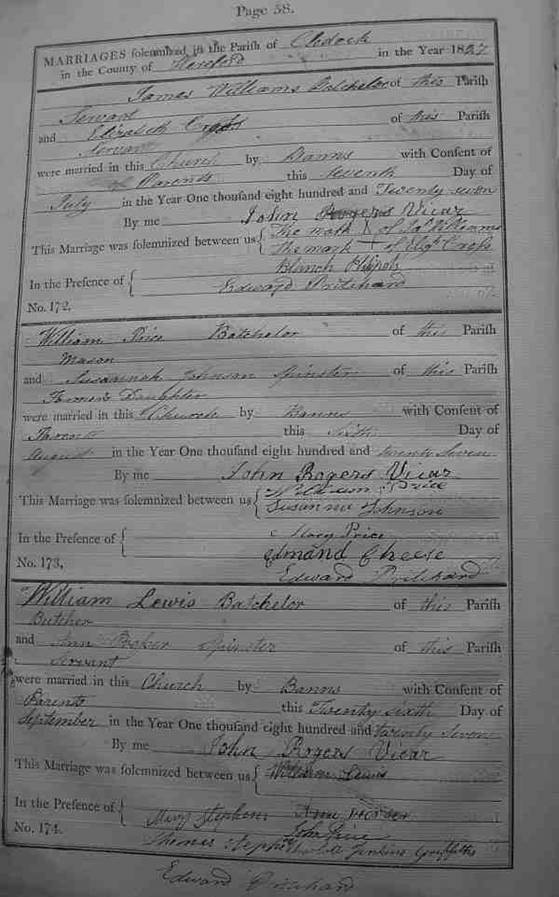 Page 58.
MARRIAGES solemnized in the Parish of Clodock
in the County of Hereford in the Year 1827
James Williams Batchelor of this Parish
Servant
and Elizabeth of this Parish
Servant
were married in this Church by Banns with Consent of
Parents this seventh Day of
July in the Year One thousand eight hundred and Twenty seven
By me John Rogers Vicar
This Marriage was solemnized between us { The mark of Jas Williams
The mark of
In the Presence of { Blanch
Edward Pritchard
No. 172.
William Price Batchelor of this Parish
Mason
and Susannah Johnson Spinster of this Parish
Farmer's Daughter
were married in this Church by Banns with Consent of
Parents this Sixth Day of
August in the Year One thousand eight hundred and twenty Seven
By me John Rogers Vicar
This Marriage was solemnized between us { William Price
Susanna Johnson
In the Presence of { Mary Price
Edmand Cheese
No. 173. Edward Pritchard
William Lewis Batchelor of this Parish
Butcher
and Ann Spinster of this Parish
Servant
were married in this Church by Banns with Consent of
Parents this Twenty sixth Day of
September in the Year One thousand eight hundred and twenty Seven
By me John Rogers Vicar
This Marriage was solemnized between us { William Lewis
Ann
In the Presence of { Mary Stephens
John Price
No. 174. Thomas Jenkins Griffiths
Edward Pritchard